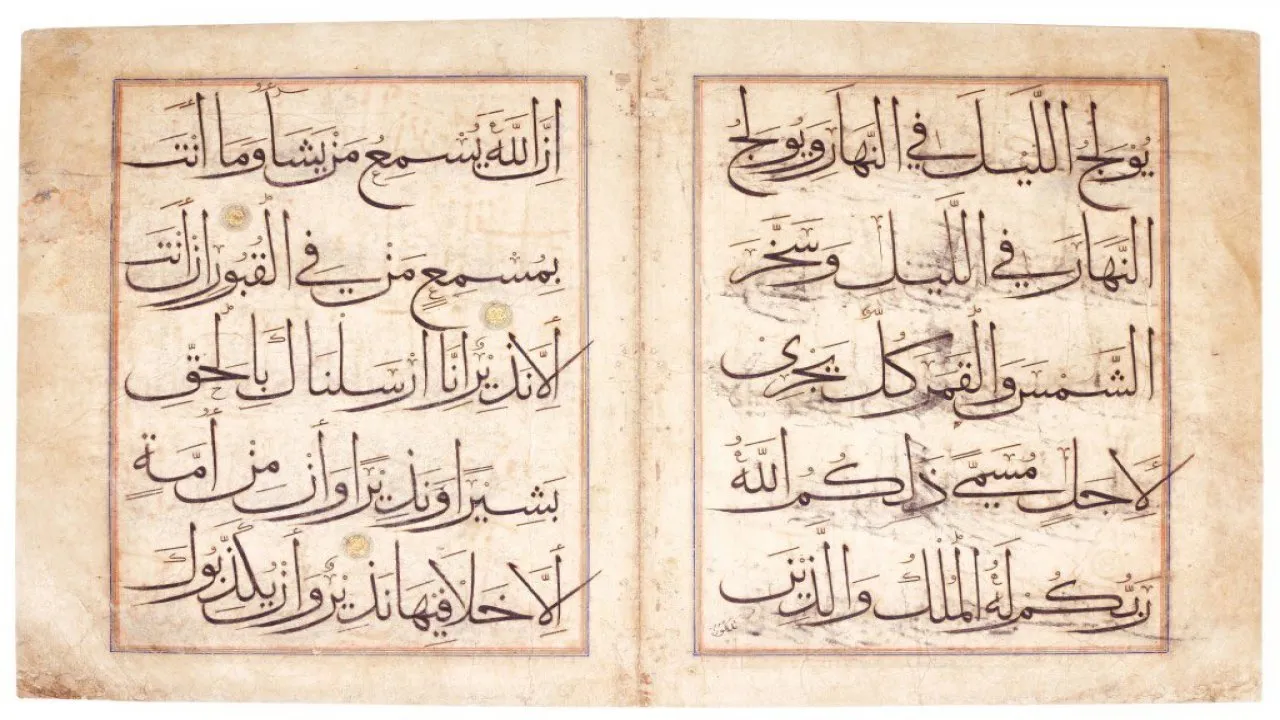 يُولِجُ اللَّيْلَ فِي النَّهَارِ وَيُولِجُ
النَّهَارَ فِي اللَّيْلِ وَسَخَّرَ
الشَّمْسَ وَالْقَمَرَ كُلٌّ يَجْرِي
لِأَجَلٍ مُسَمًّى ذَلِكُمُ اللَّهُ
رَبُّكُمْ لَهُ الْمُلْكُ وَالَّذِينَ
إِنَّ اللَّهَ يُسْمِعُ مَنْ يَشَاءُ وَمَا أَنْتَ
بِمُسْمِعٍ مَنْ فِي الْقُبُورِ إِنْ أَنْتَ
إِلَّا نَذِيرٌ إِنَّا أَرْسَلْنَاكَ بِالْحَقِّ
بَشِيرًا وَنَذِيرًا وَإِنْ مِنْ أُمَّةٍ
إِلَّا خَلَا فِيهَا نَذِيرٌ وَإِنْ يُكَذِّبُوكَ